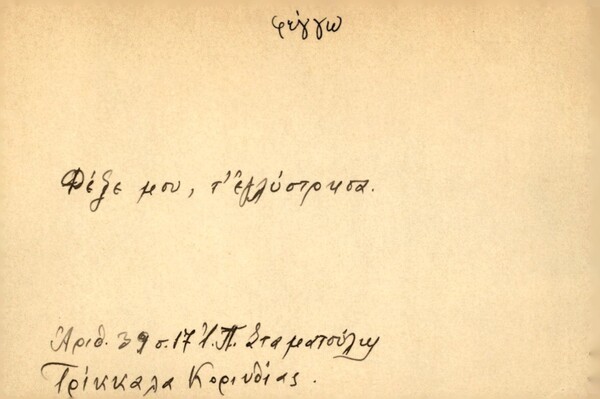 φέγγω
Φέξε μου, τ' ἐγλύστρησα.
Ἀριθ. 39 σ. 17 Ἰ. Π. Σταματούλη
Τρίκκαλα Κορινθίας.